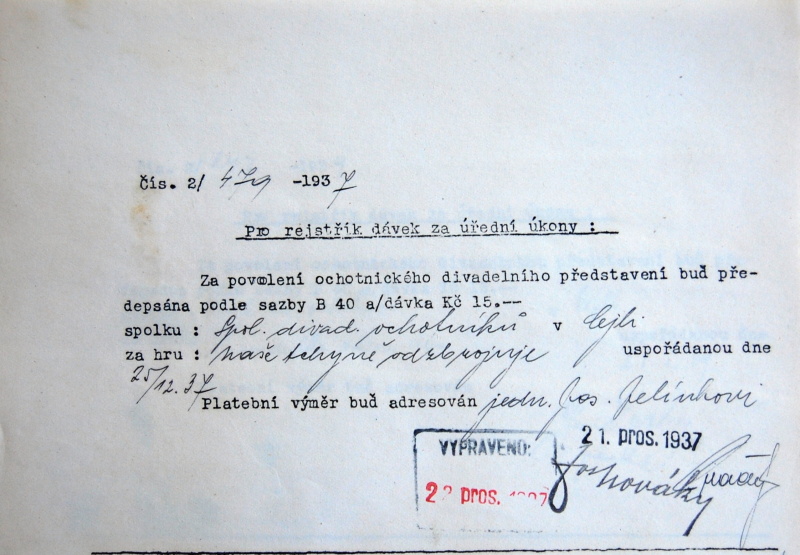 čís. 2/ 479 -1937
Pro rejstřík dávek za úřední úkony :
Za povolení ochotnického divadelního představení buď pře-
depsána podle sazby B 40 a/dávka Kč 15.--
spolku : Spol. divad. ochotníků v Cejli
za hru : Naše tchyně odzbrojuje uspořádanou dne
25/12.37
Platební výměr buď adresován jedn. Jos. Jelínkovi
21. pros. 1937
VYPRAVENO:
pros. 1937